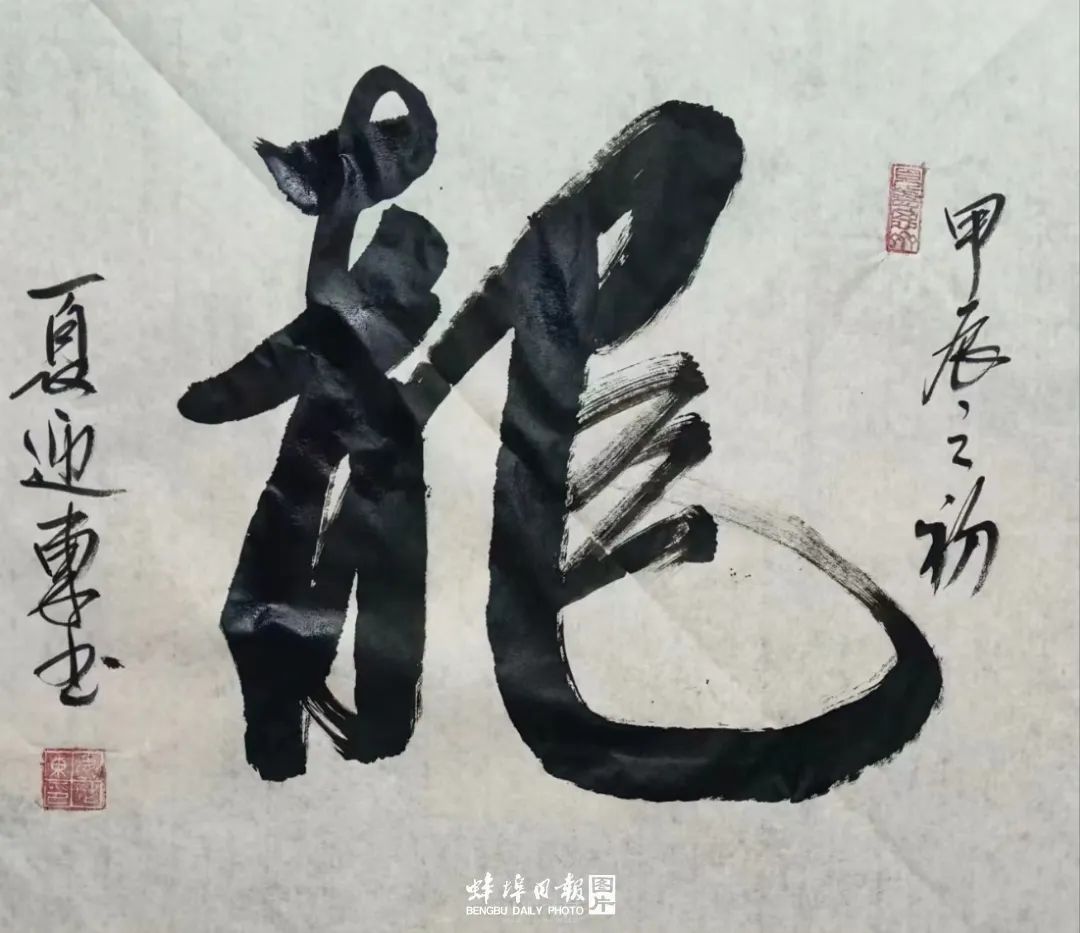 甲辰之初
龍
夏迎東书
蚌埠日報 图片
BENGBU DAILY PHOTO